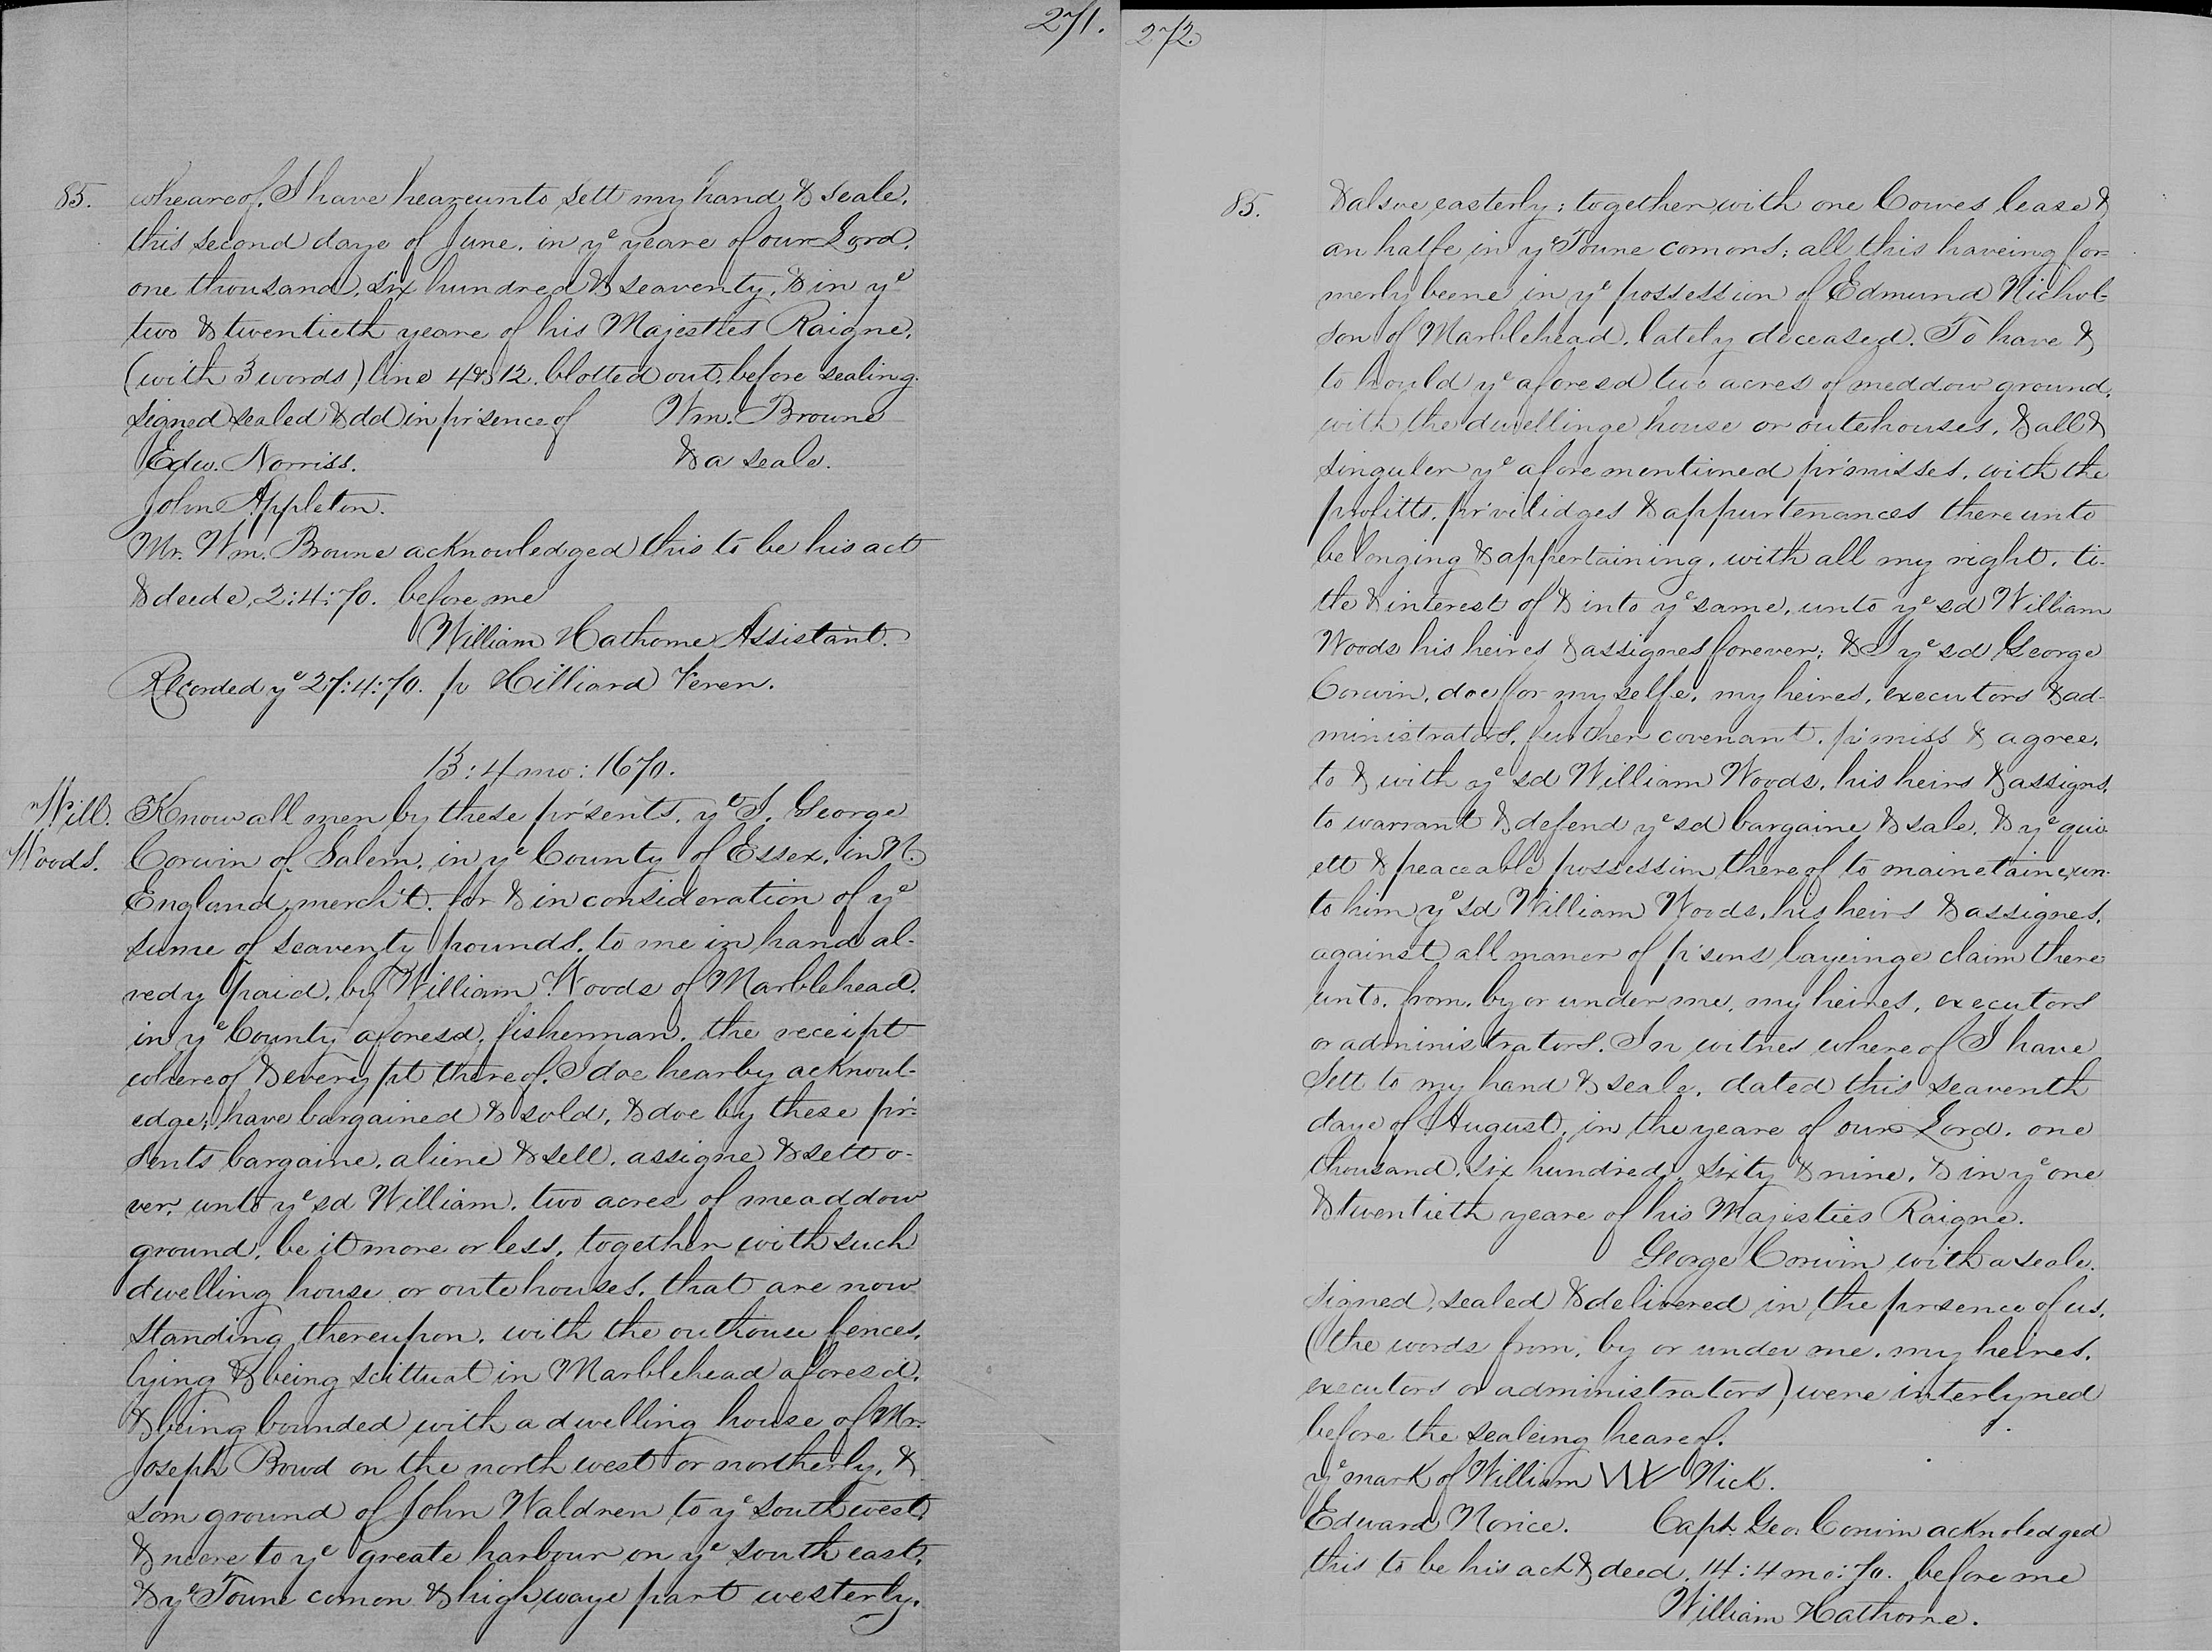 271.
85. wheareof, I have heareunto sett my hand & seale,
this second daye of June, in yᵉ yeare of our Lord,
one thousand, six hundred & seaventy, & in yᵉ
two & twentieth yeare of his Majesties Raigne,
(with 3 words) line 4 & 12. blotted out, before sealing.
signed sealed & dd in pr'sence of Wm. Browne
Edw. Norriss. & a seale.
John Appleton.
Mr. Wm. Browne acknowledged this to be his act
& deede, 2:4:70. before me
William Hathorne Assistant.
Recorded yᵉ 27:4:70. pr Hilliard Veren.
13:4 mo: 1670.
Will. Know all men by these pr'sents, yᵗ I, George
Woods. Corwin of Salem, in yᵉ County of Essex, in N.
England, merch't. for & in consideration of yᵉ
sume of seaventy pounds, to me in hand al-
redy paid, by William Woods of Marblehead,
in yᵉ County aforesd, fisherman, the receipt
whereof & every pt thereof, I doe hearby acknowl-
edge; have bargained & sold, & doe by these pr'-
sents bargaine, aliene & sell, assigne & sett o-
ver, unto yᵉ sd William, two acres of meaddow
ground, be it more or less, together with such
dwelling house or outehouses, that are now
standing thereupon, with the outhouse fences,
lying & being scittuat in Marblehead aforesd,
& being bounded with a dwelling house of Mr.
Joseph Rowd on the north west or northerly, &
som ground of John Waldren to yᵉ southwest,
& neere to yᵉ greate harbour on yᵉ south east,
& yᵉ Towne comon & highwaye part westerly,
272.
85. & alsoe easterly; together with one Cowes lease &
an halfe in yᵉ Towne comons; all this haveing for-
merly beene in yᵉ possession of Edmund Nichol-
son of Marblehead, lately deceased. To have &
to hould yᵉ aforesd two acres of meddow ground,
with the dwellinge house or outehouses, & all &
singuler yᵉ afore mentioned pr'misses, with the
profitts, pr'vilidges & appurtenances thereunto
belonging & appertaining, with all my right, ti-
tle & interest of & into yᵉ same, unto yᵉ sd William
Woods his heires & assignes forever; & I yᵉ sd George
Corwin, doe for my selfe, my heires, executors & ad-
ministrators, further covenant, pr'miss & agree,
to & with yᵉ sd William Woods, his heirs & assigns,
to warrant & defend yᵉ sd bargaine & sale, & yᵉ qui-
ett & peaceable possession thereof to mainetaine, un-
to him yᵉ sd William Woods, his heirs & assignes,
against all maner of p'sons layeinge claim there
unto, from, by or under me, my heires, executors
or administrators. In witnes whereof I have
Sett to my hand & seale, dated this seaventh
daye of August, in the yeare of our Lord, one
thousand, six hundred, sixty & nine, & in yᵉ one
& twentieth yeare of his Majesties Raigne.
George Corwin with a seale.
signed, sealed & delivered in the prsence of us,
(the words from, by or under me, my heires,
executors or administrators) were interlyned
before the sealeing heareof.
yᵉ mark of William W Nick.
Edward Norice. Capt. Geo. Corwin acknoledged
this to be his act & deed, 14:4 mo:70. before me
William Hathorne.